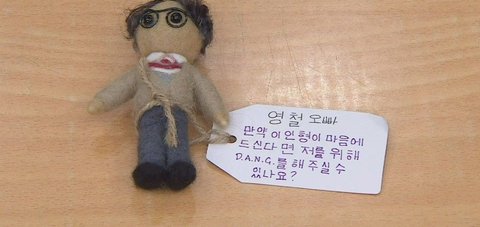 영철 오빠
만약 이 인형이 마음에
드신다면 저를 위해
D.A.N.G.를 해 주실 수
있나요?